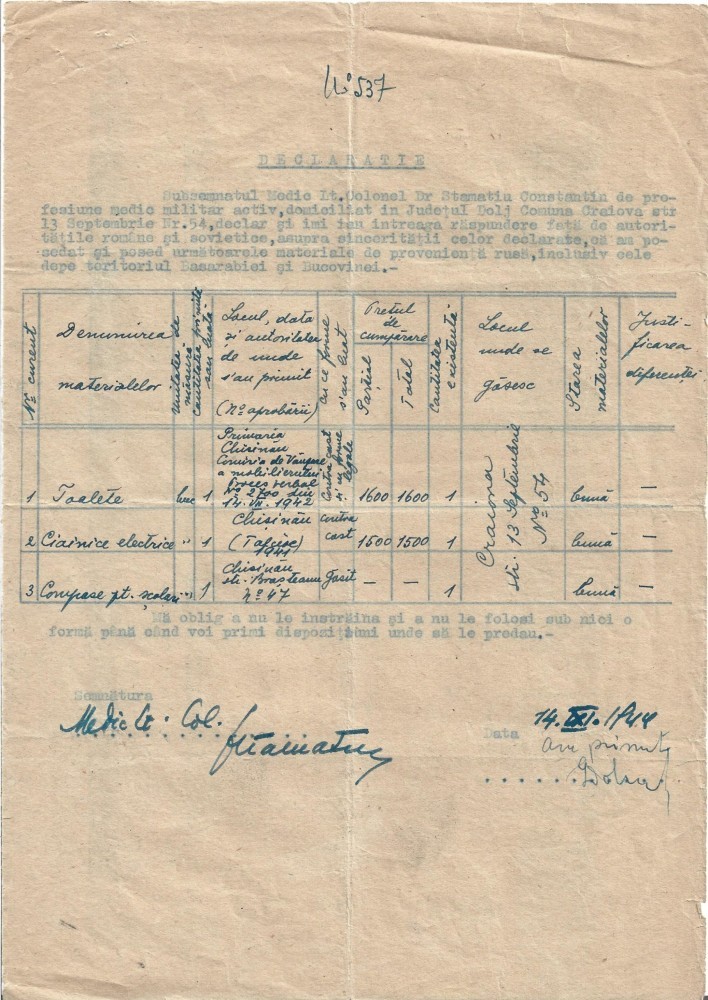 No 537
DECLARATIE
Subsemnatul Medic Lt.Colonel Dr Stamatiu Constantin de pro-
fesiune medic militar activ,domiciliat in Județul Dolj Comuna Craiova str
13 Septembrie Nr.54,declar și imi iau intreaga răspundere față de autori-
tățile române și sovietice,asupra sincerității celor declarate,că am po-
sedat și posed următoarele materiale de proveniență rusă,inclusiv cele
depe teritoriul Basarabiei și Bucovinei.-
No curent
Denumirea
materialelor
Unitatea de
măsură
cantitatea primită
sau luată
Locul, data
și autoritatea
de unde
s'au primit
(No aprobării)
cu ce forme
s'au luat
Prețul
de
cumpărare
Parțial
Total
Cantitatea
existentă
Locul
unde se
găsesc
Starea
materialelor
Justi-
ficarea
diferenței
1 Toalete buc 1
Primăria
Chișinău
Comisia de Vânzare
a mobilierului
Proces verbal
No 2700 din
14.VII.1942
Contra cost
și cu forme
legale
1600 1600 1
Craiova
str. 13 Septembrie
No 54
bună —
2 Ciainice electrice " 1
Chișinău
1941
contra
cost
1500 1500 1 bună —
3 Compase pt. școlari " 1
Chișinău
str. Brașteanu
No 47
Găsit
— — 1 bună —
Mă oblig a nu le instrăina și a nu le folosi sub nici o
formă până când voi primi dispozițiuni unde să le predau.-
Semnătura
Medic Lt. Col. Stamatiu
Data 14.XI.1944
am primit